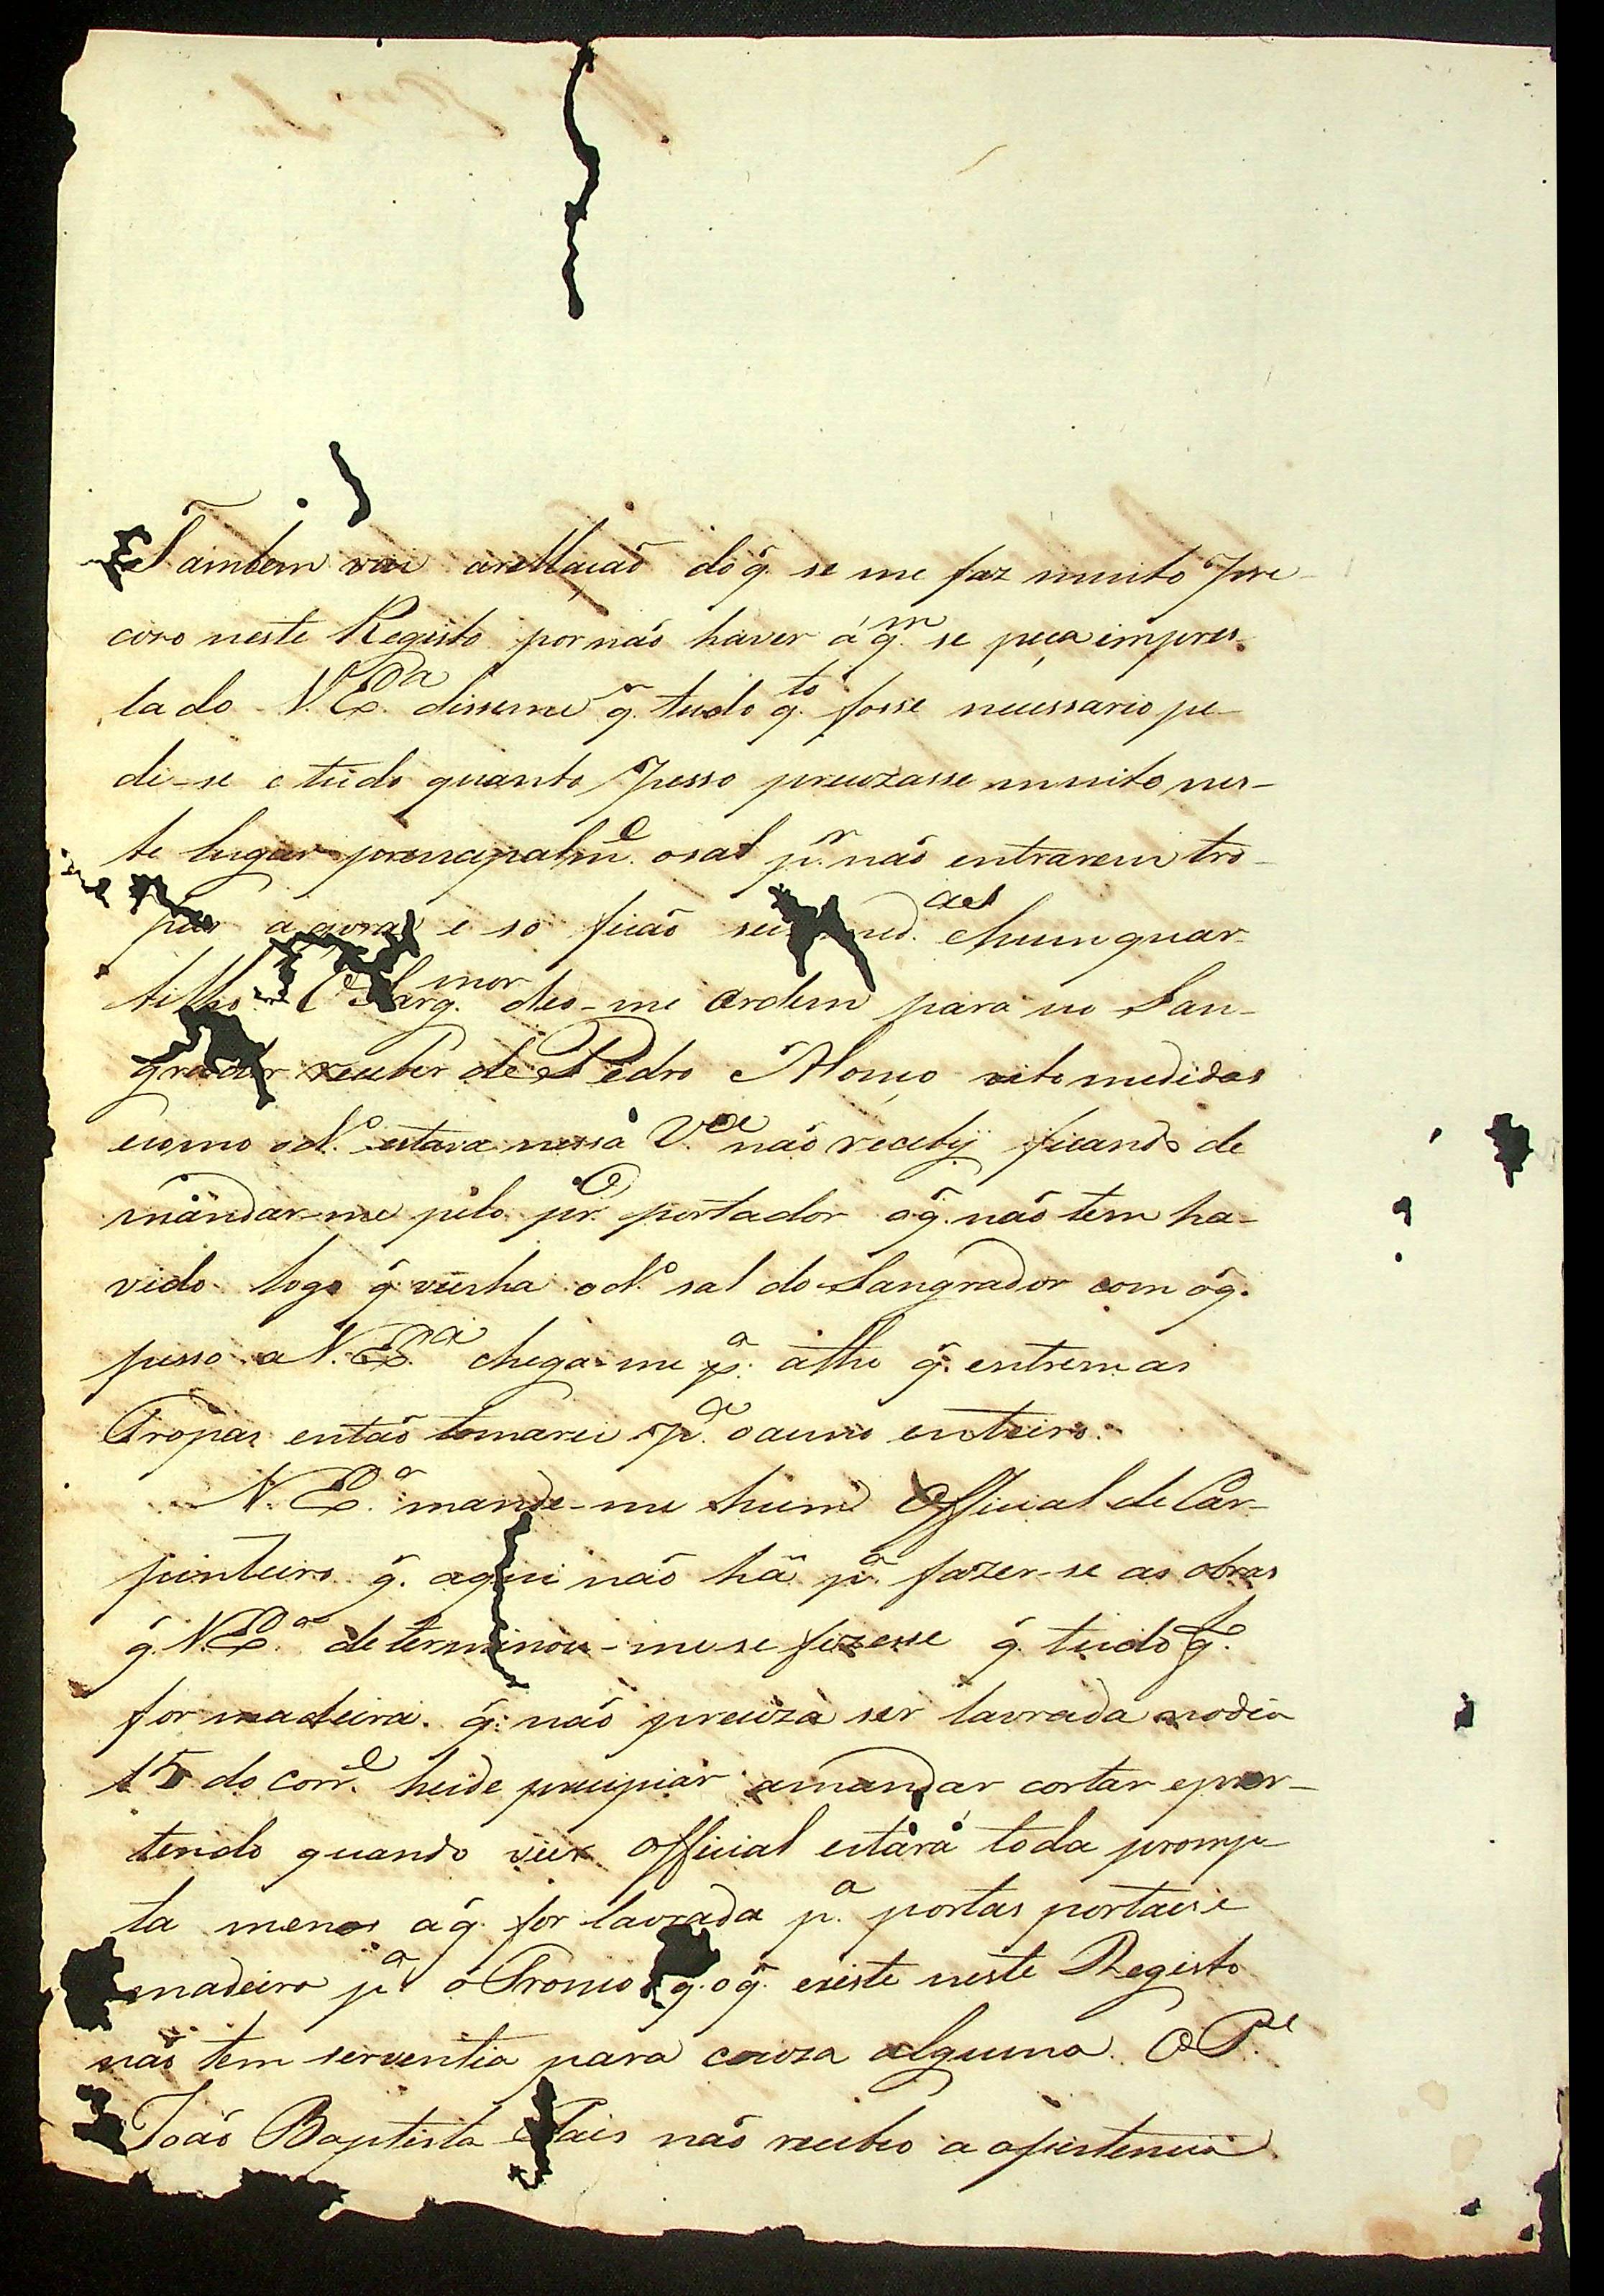 Tambem vai arellação do q̃. se me faz muito pre-
cizo neste Registo por não haver á q.^m se peça impres-
tado V. Ex.^a disseme q̃. tudo q.^to fosse necessario pe-
di-se e tudo quanto pesso precizasse muito nes-
te lugar prencipalm.^e o sal p.^r não entrarem tro-
pas agora e so ficão med.^as e hum quar-
tilho O Sarg.^mor deo-me ordem para no San-
grador receber de Pedro Alonço oito medidas
e como o d.^o estava nessa V.^a não recebÿ ficando de
mandar-me pelo pr.^o portador o q̃. não tem ha-
vido logo q̃ venha o d.^o sal do Sangrador com o q̃.
pesso a V. Ex.^a chega-me p.^a athe q̃. entrem as
Tropas então tomarei p.^a o anno enteiro.
V. Ex.^a mande-me hum Official de Car-
pinteiro q̃. aqui não há p.^a fazer-se as obras
q̃. V. Ex.^a determinou-me se fizesse q̃. tudo q̃.
for madeira. q̃. não preciza ser lavrada no dia
15 do corr.^e heide precipiar a mandar cortar e per-
tendo quando vier Official estárá toda promp-
ta menos a q̃. for lavrada p.^a portas portais e
madeira p.^a o Tronco q. o q̃. existe neste Registo
não tem serventia para couza alguma. O P.^e
João Baptista Pais não recebeo a asistencia